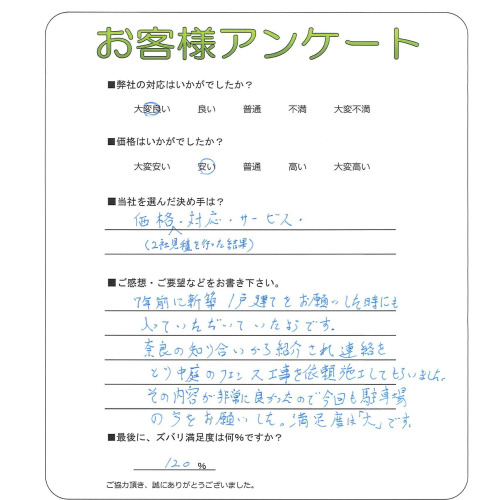 お客様アンケート
■弊社の対応はいかがでしたか？
大変良い 良い 普通 不満 大変不満
■価格はいかがでしたか？
大変安い 安い 普通 高い 大変高い
■当社を選んだ決め手は？
価格・対応・サービス・
(2社見積を行った結果)
■ご感想・ご要望などをお書き下さい。
7年前に新築1戸建てをお願いした時にも
入ていただいていたようです.
奈良の知り合いから紹介され連絡を
とり中庭のフェンス工事を依頼施工してもらいました。
その内容が非常に良かったので今回も駐車場
の方をお願いした。満足度は「大」です.
■最後に、ズバリ満足度は何％ですか？
120 %
ご協力頂き、誠にありがとうございました。